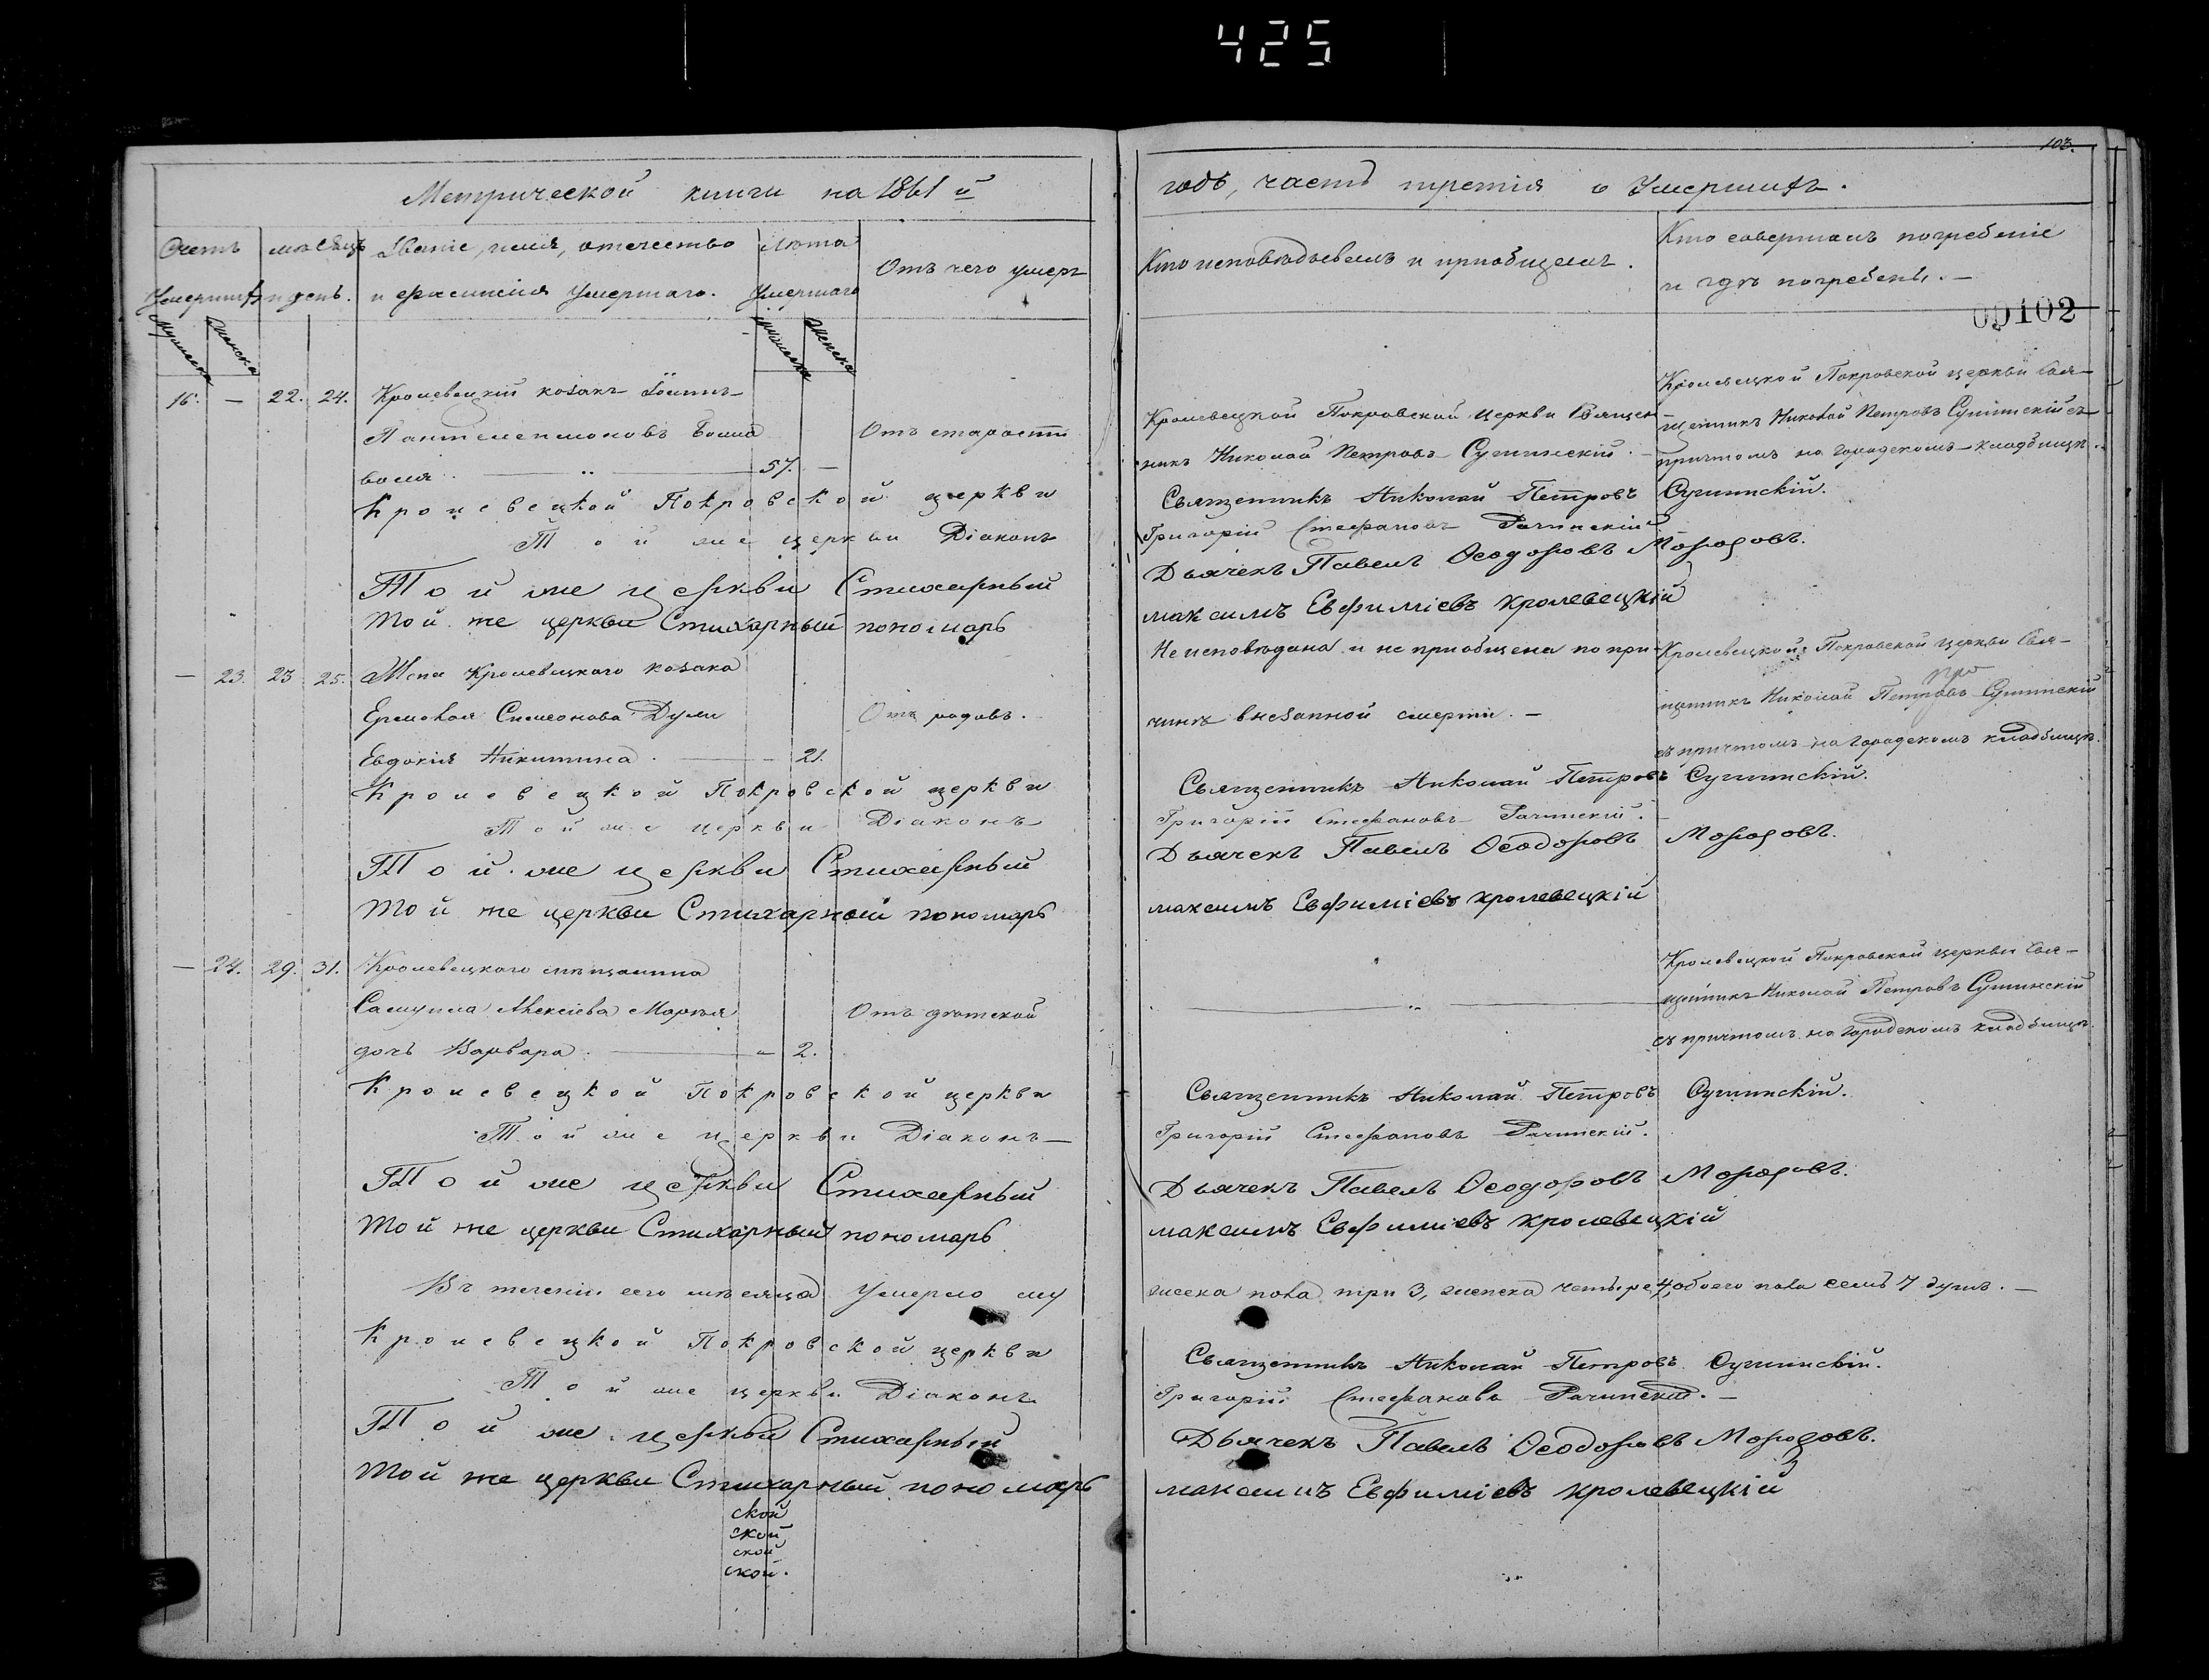 425
103.
Метрической книги на 1861 й
годъ, часть третія о Умершихъ.
Счетъ Умершихъ
мѣсяцъ и день.
Званіе, имя, отечество и фамилія Умершаго.
Лѣта Умершаго
Отъ чего умеръ
Кто исповѣдывалъ и пріобщалъ.
Кто совершалъ погребеніе
и гдѣ погребены. —
09102
Мужеска Женска
Мужеска Женска
16. — 22. 24. Кролевецкій козакъ Іоаннъ
Пантелеимоновъ
воля 57. —
Отъ старости
Кролевецкой Покровской церкви Священ-
никъ Николай Петровъ Сулимскій.
Кролевецкой Покровской церкви Свя-
щенникъ Николай Петровъ Сулимскій съ
причтомъ на городскомъ кладбищѣ.
Кролевецкой Покровской церкви Священникъ Николай Петровъ Сулимскій.
Той же церкви Діаконъ Григорій Стефановъ Рачинскій
Той же церкви Стихарный Дьячекъ Павелъ Ѳеодоровъ Мороզовъ.
Той же церкви Стихарный пономарь максимъ Евфиміевъ кролевецкій
— 23. 23 25. Жена Кролевецкаго козака
Ермолая Симеонова Дули
Евдокія Никитина. — 21.
Отъ родовъ.
Не исповѣдана и не пріобщена по при-
чинѣ внезапной смерти. —
Кролевецкой Покровской церкви Свя-
щенникъ Николай Петровъ Сулимскій
съ причтомъ на городскомъ кладбищѣ.
Кролевецкой Покровской церкви Священникъ Николай Петровъ Сулимскій.
Той же церкви Діаконъ Григорій Стефановъ Рачинскій.
Той же церкви Стихарный Дьячекъ Павелъ Ѳеодоровъ Морозовъ.
Той же церкви Стихарный пономарь максимъ Евфиміевъ кролевецкій
— 24. 29. 31. Кролевецкаго мѣщанина
Самуила Алексіева
дочь Варвара. — 2.
Отъ дѣтской
Кролевецкой Покровской церкви Свя-
щенникъ Николай Петровъ Сулимскій
съ причтомъ на городскомъ кладбищѣ.
Кролевецкой Покровской церкви Священникъ Николай Петровъ Сулимскій.
Той же церкви Діаконъ — Григорій Стефановъ Рачинскій.
Той же церкви Стихарный Дьячекъ Павелъ Ѳеодоровъ Морозовъ.
Той же церкви Стихарный пономарь максимъ Евфиміевъ кролевецкій
Въ теченіи сего мѣсяца Умерло му
жеска пола три 3, женска четыре 4, обоего пола семь 7 душъ. —
Кролевецкой Покровской церкви Священникъ Николай Петровъ Сулимскій.
Той же церкви Діаконъ Григорій Стефановъ Рачинскій. —
Той же церкви Стихарный Дьячекъ Павелъ Ѳеодоровъ Морозовъ.
Той же церкви Стихарный пономарь максимъ Евфиміевъ кролевецкій
ской
ской
ской
ской.